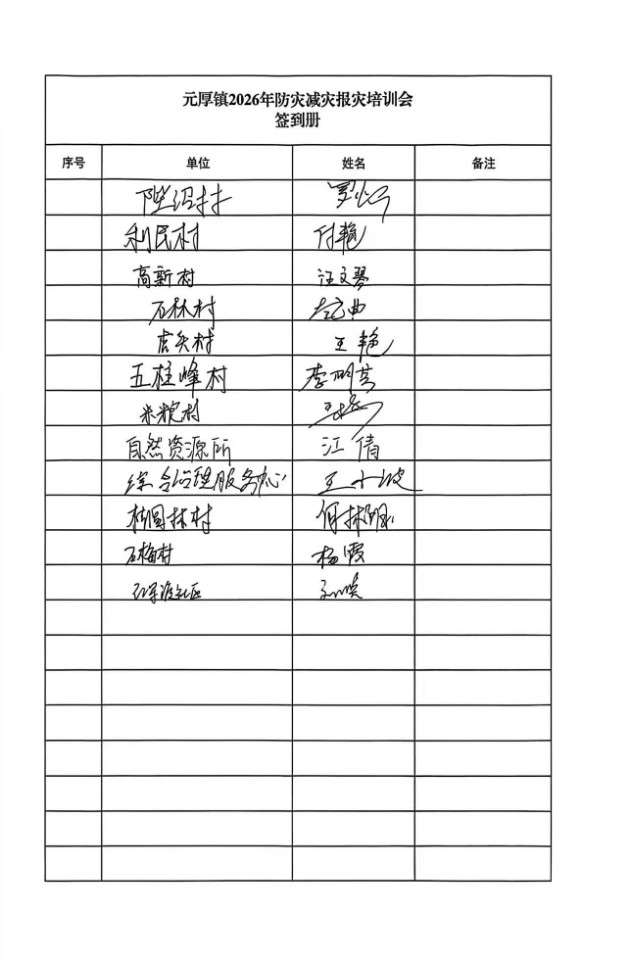 元厚镇2026年防灾减灾报灾培训会
签到册
序号 单位 姓名 备注
陛诏村
利民村 付艳
高新村 汪文琴
石林村
虎头村 王艳
五柱峰村 李明芬
米粮村
自然资源所 江倩
综合治理服务中心 王小波
桂圆林村 何林
石梅村 杨霞
社区